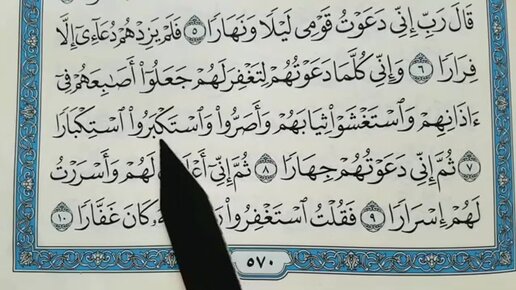 قَالَ رَبِّ إِنِّي دَعَوْتُ قَوْمِي لَيْلًا وَنَهَارًا ٥ فَلَمْ يَزِدْهُمْ دُعَآءِيٓ إِلَّا
فِرَارًا ٦ وَإِنِّي كُلَّمَا دَعَوْتُهُمْ لِتَغْفِرَ لَهُمْ جَعَلُوٓا۟ أَصَٰبِعَهُمْ فِيٓ
ءَاذَانِهِمْ وَٱسْتَغْشَوْا۟ ثِيَابَهُمْ وَأَصَرُّوا۟ وَٱسْتَكْبَرُوا۟ ٱسْتِكْبَارًا
٧ ثُمَّ إِنِّي دَعَوْتُهُمْ جِهَارًا ٨ ثُمَّ إِنِّيٓ لَهُمْ وَأَسْرَرْتُ
لَهُمْ إِسْرَارًا ٩ فَقُلْتُ ٱسْتَغْفِرُوا۟ كَانَ غَفَّارًا ١٠
٥٧٠